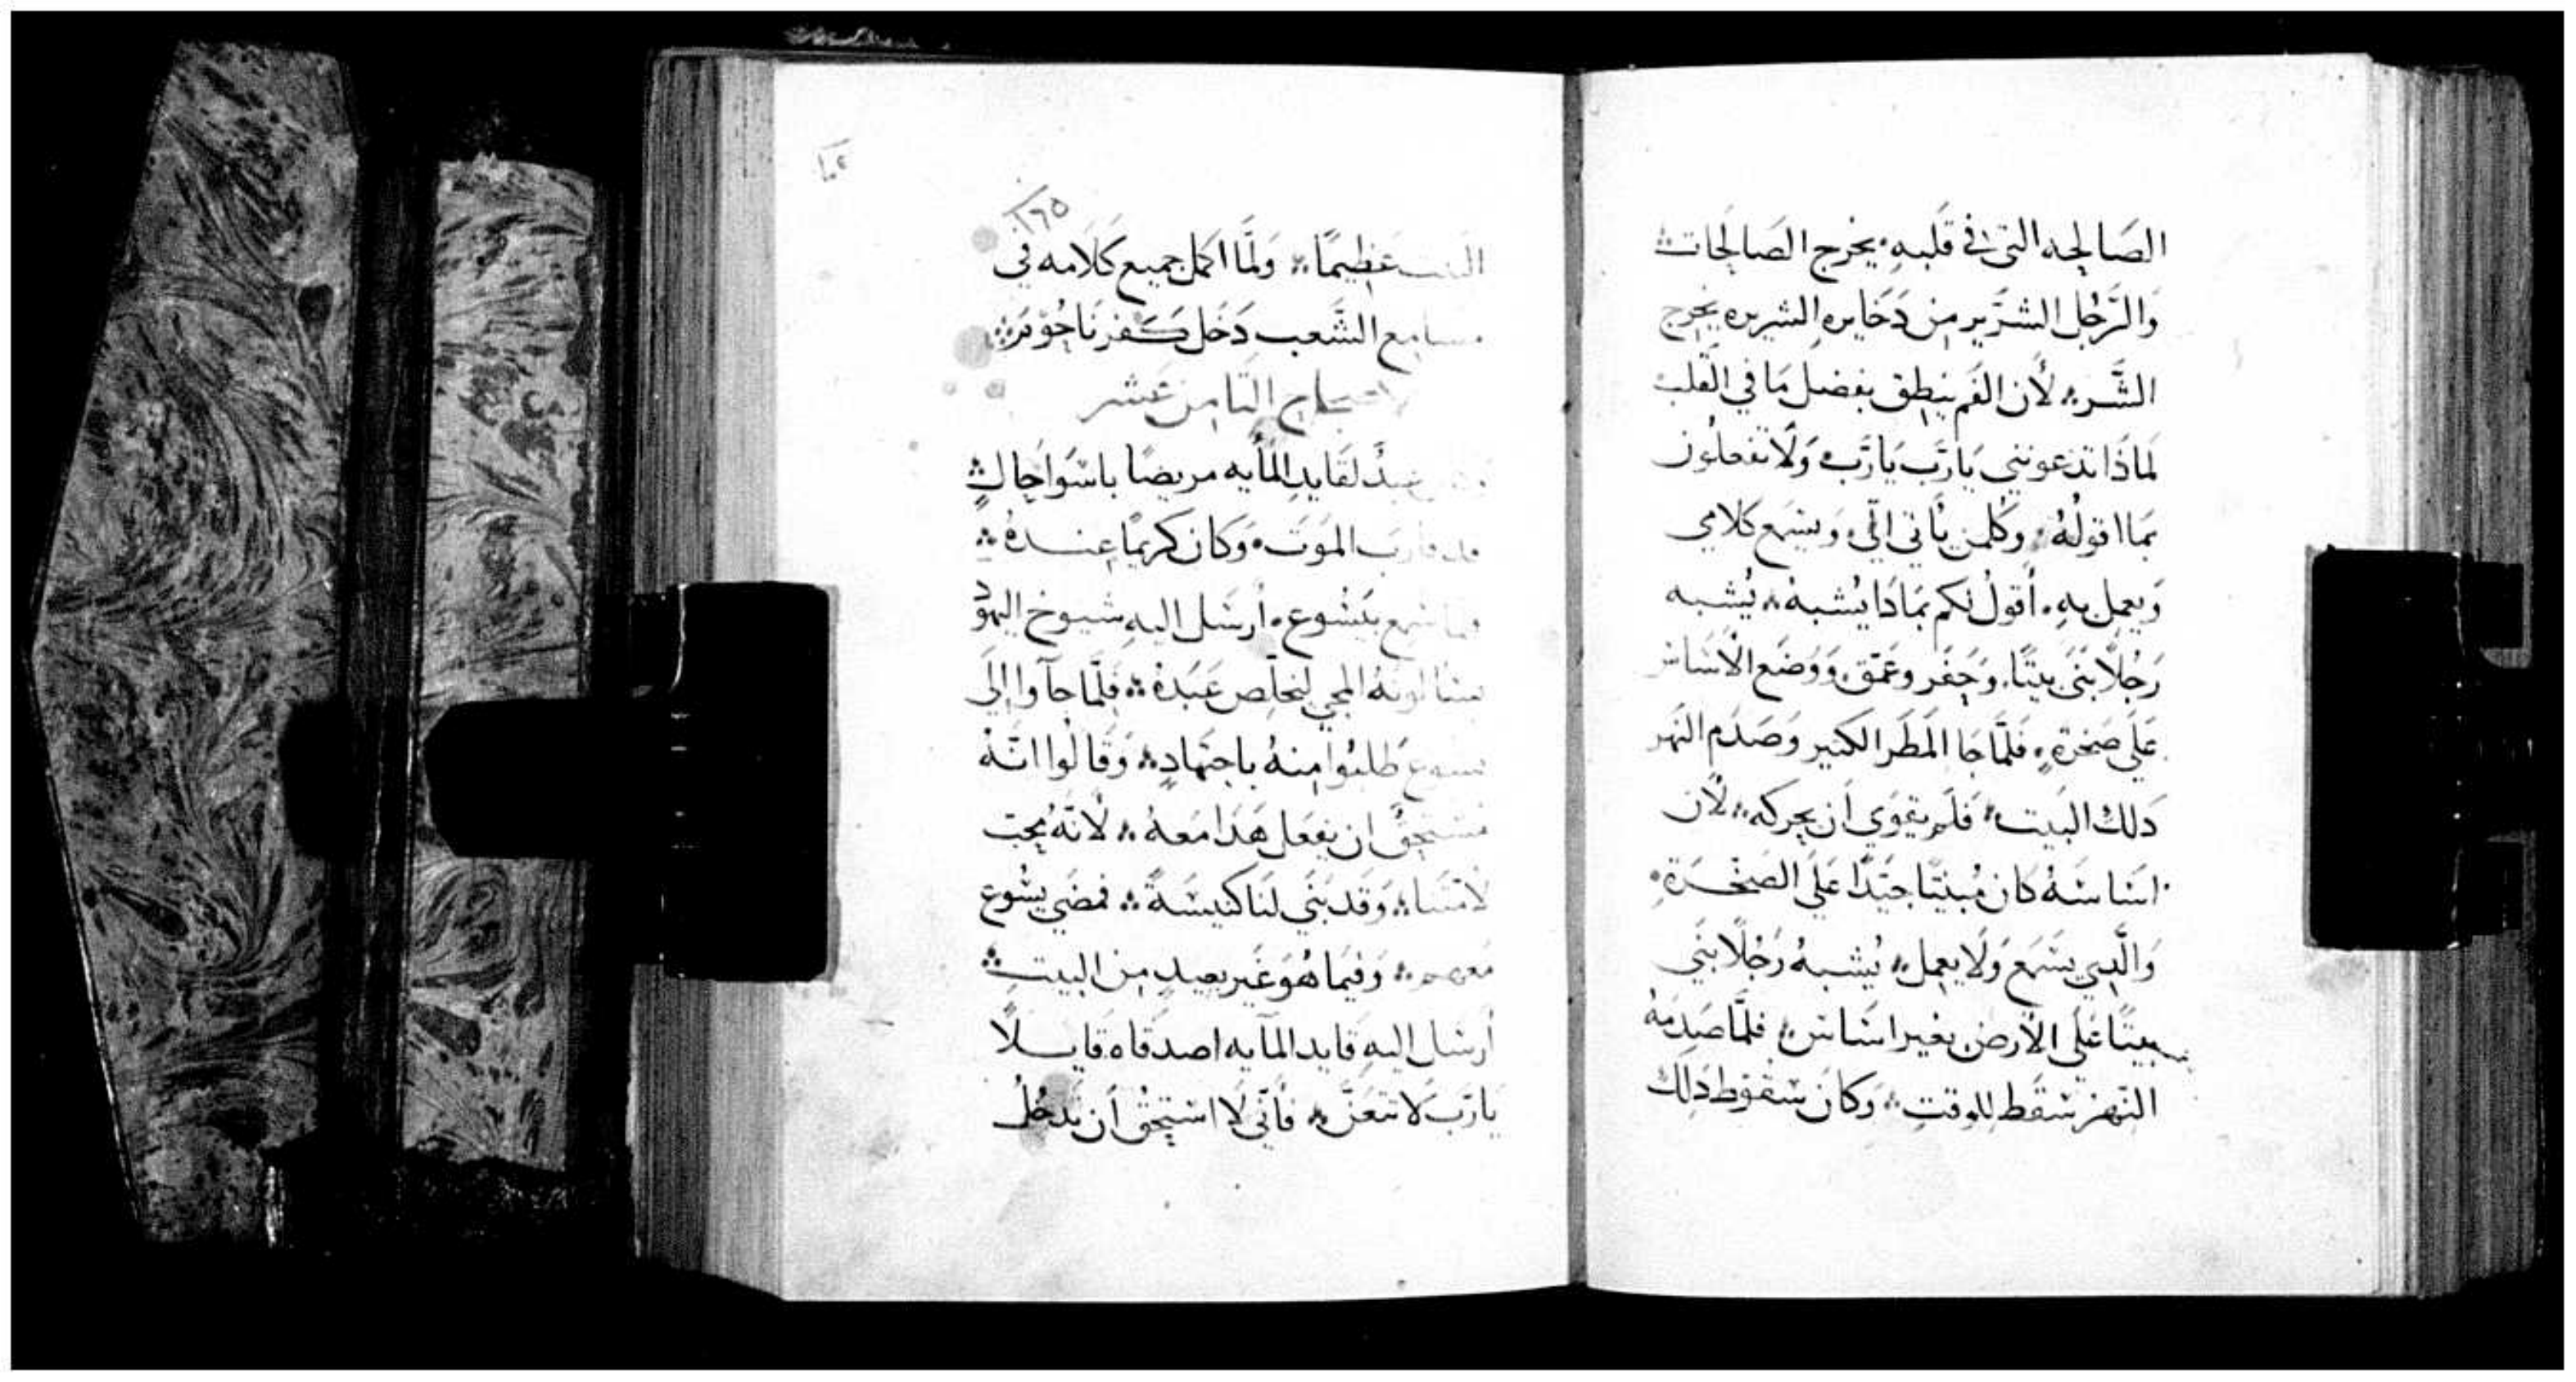 الصَالحه التي في قَلبهِ يخرج الصَالحات
وَالرَّجُل الشرّير مِن دَخَايره الشريره يخرج
الشَّر لأن الفَم ينطِق بفضل مَا في القلب
لمَاذَا تدعونني يَارَب يَارَب وَلَا تفعلون
بمَا اقولُهُ وَكلمن يأتي اليّ وَيسمع كلامي
وَيعمل بهِ أقولُ لكم بمَاذَا يُشبهُ يُشبه
رَجُلًا بَنَى بيتًا وَحفر وعَمّق وَوَضَع الأسَاس
عَلَى صَخرةٍ فَلمَّا جَا المَطَر الكثير وَصَدَم النَهر
دَلك البَيت فَلم يَقوَى أن يحركه لأن
اسَاسَهُ كان مُبنيًّا جيّدًا عَلَى الصَخرَةِ
وَالَّدِي يسَمع وَلَا يعمل يُشبهُ رَجُلًا بَنَى
بيتًا عَلَى الأرض بغير اسَاس فلمَّا صَدمَهُ
النَهر سَقَط للوقتِ وَكانَ سُقوط دَلِك
١٦٥
١٠٢
البيت عَظيمًا وَلمَّا اكمل جميع كَلَامه في
مسامع الشَّعب دَخَل كَفرنَاحُوم
الثَامِن عَشر
عَبدٌ لقَايدِ المَأيه مريضًا باسوَا حَالٍ
قد قارَب المَوت وَكان كريمًا عِندهُ
فلما سَمع بيَسُوع أرسَل اليهِ شيوخ اليهُود
المجي ليخلّص عَبدهُ فلمَّا جآوا إلَى
يسوع طَلبُوا مِنهُ باجتهادٍ وَقَالُوا انّهُ
مستحِقٌ ان يفعَل هَدَا معهُ لأنّهُ يُحب
لامتنا وَقَد بَنَى لنَا كنيسَةً فمضَى يسُوع
معهم وَفيمَا هُوَ غَير بعيدٍ مِن البيتِ
أرسَل اليهِ قايد المأيه اصدقاه قايلًا
يارَب لا تتعَنَّ فأنّي لَا استحِقُ أن تَدخُلُ